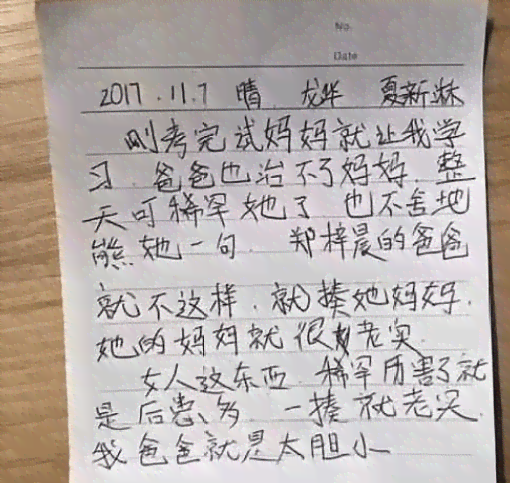 No.
Date
2017.11.7 晴 龙华 夏新淋
刚考完试妈妈就让我学
习.爸爸也治不了妈妈.整
天可稀罕她了 也不舍地
熊她一句. 郑梓晨的爸爸
就不这样.就揍她妈妈.
她的妈妈就很老实.
女人这东西.稀罕厉害了就
是后患多 一揍就老实.
我爸爸就是太胆小